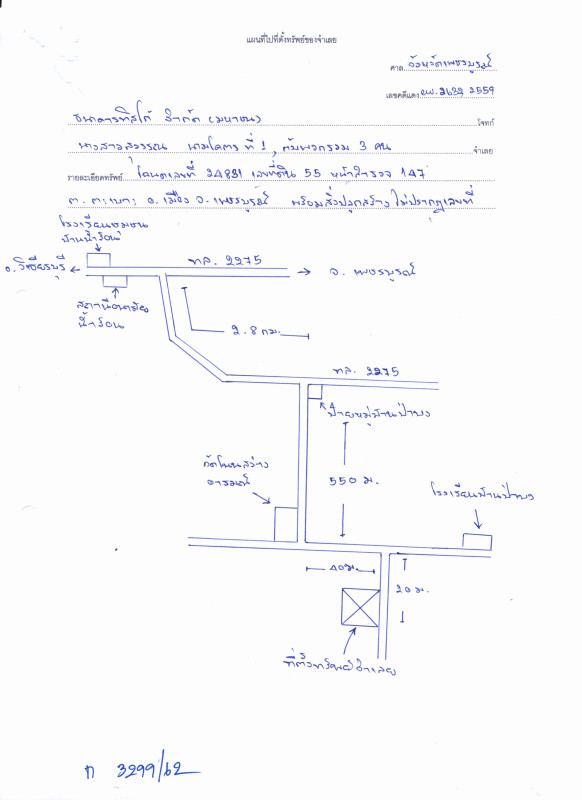 แผนที่ไปที่ตั้งทรัพย์ของจำเลย
ศาล จังหวัดเพชรบูรณ์
เลขคดีแดง ผบ. 2559
ธนาคารทิสโก้ จำกัด (มหาชน) โจทก์
นางสาวสุวรรณ ที่ 1, กับพวกรวม 3 คน จำเลย
รายละเอียดทรัพย์ โฉนดเลขที่ 24831 เลขที่ดิน 55 หน้าสำรวจ 147
ต. ตะเบาะ อ. เมือง จ. เพชรบูรณ์ พร้อมสิ่งปลูกสร้าง ไม่ปรากฏเลขที่
โรงเรียนชุมชน
บ้านน้ำร้อน
อ. วิเชียรบุรี
ทล. 2275
จ. เพชรบูรณ์
สถานีอนามัย
น้ำร้อน
2.8 กม.
ทล. 2275
ป้ายหมู่บ้านป่าบง
วัดโนนสว่าง
อารมณ์
550 ม.
โรงเรียนบ้านป่าบง
40 ม.
20 ม.
ที่ตั้งทรัพย์จำเลย
ก 3299/62